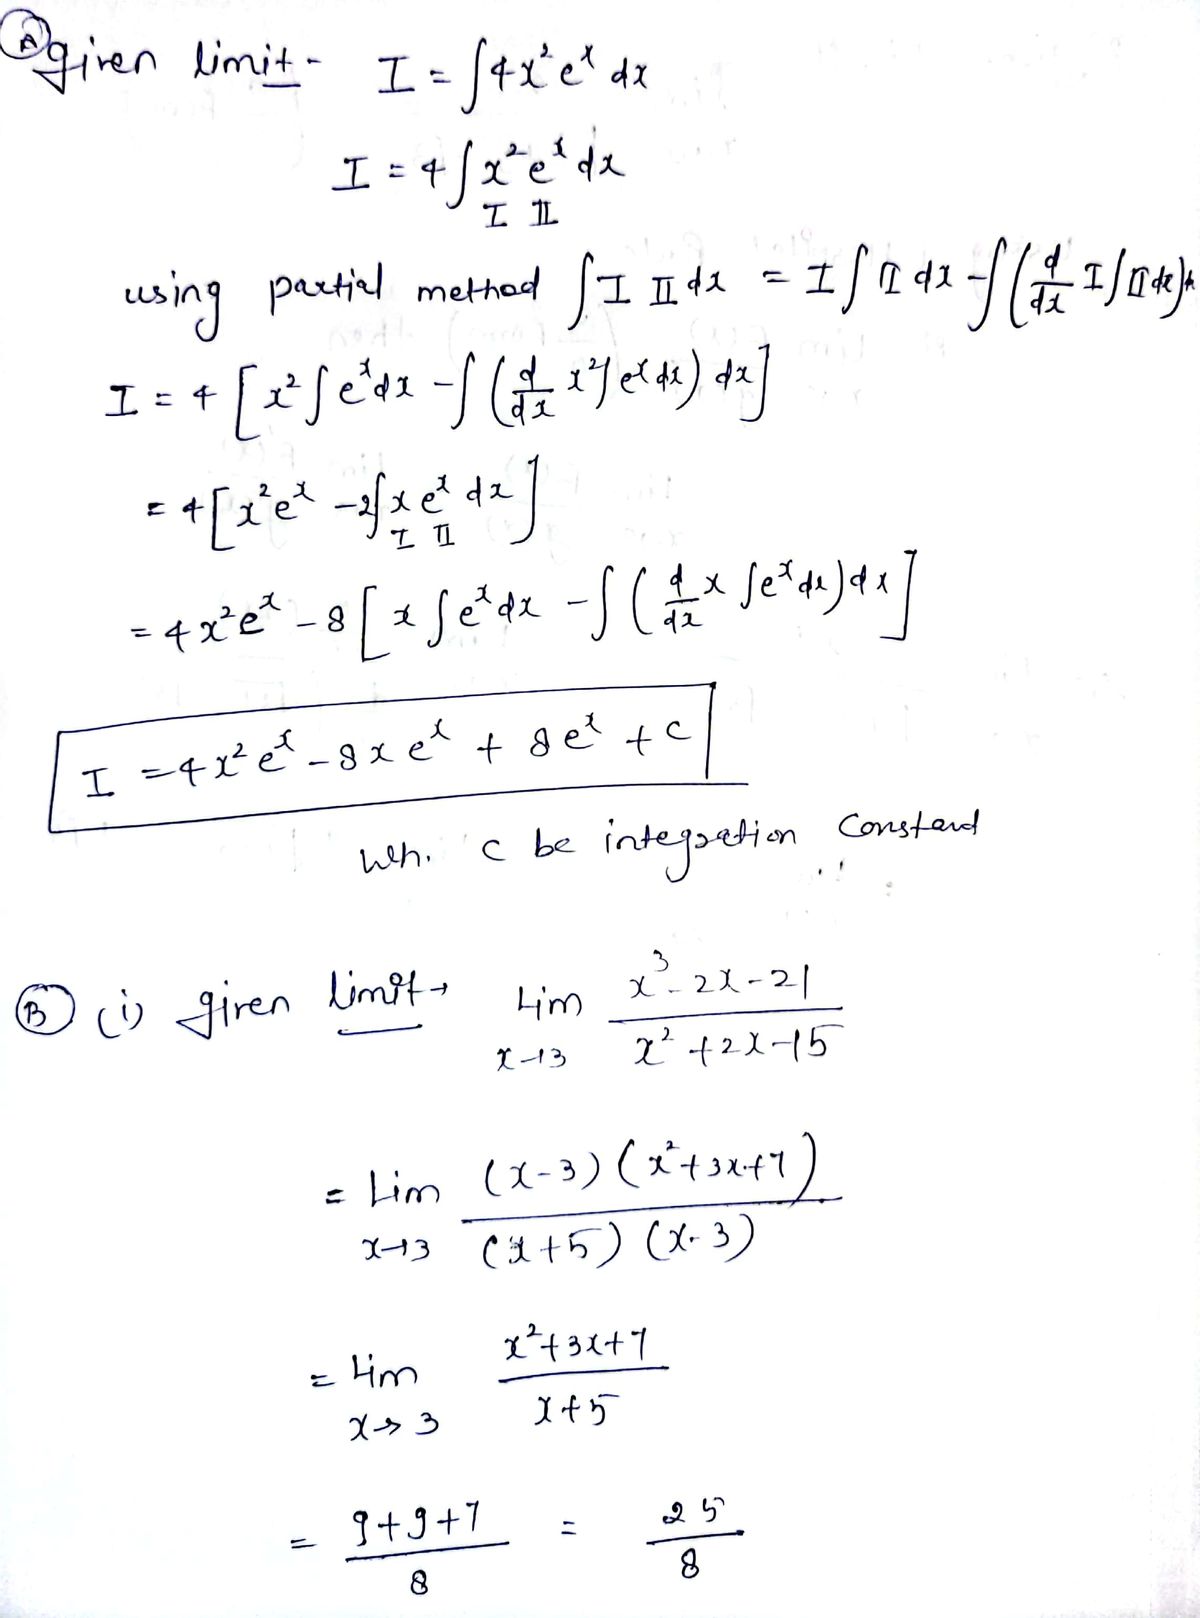 Ⓐ given limit - I = ∫4x²eˣ dx
I = 4∫x²eˣ dx
I II
using partial method ∫I II dx = I∫II dx - ∫(d/dx I∫II dx)dx
I = 4[x²∫eˣdx - ∫(d/dx x²∫eˣdx) dx]
= 4[x²eˣ - 2∫xeˣ dx]
I II
= 4x²eˣ - 8[x∫eˣdx - ∫(d/dx x ∫eˣdx)dx]
I = 4x²eˣ - 8xeˣ + 8eˣ + c
wh. c be integration constand
Ⓑ (i) given limit→ Lim x→3 (x³-2x-21)/(x²+2x-15)
= Lim x→3 (x-3)(x²+3x+7)/(x+5)(x-3)
= Lim x→3 (x²+3x+7)/(x+5)
= (9+9+7)/8 = 25/8